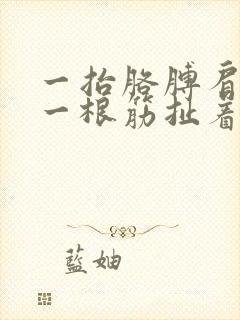 一抬胳膊肩
一根筋扯着
藍妯